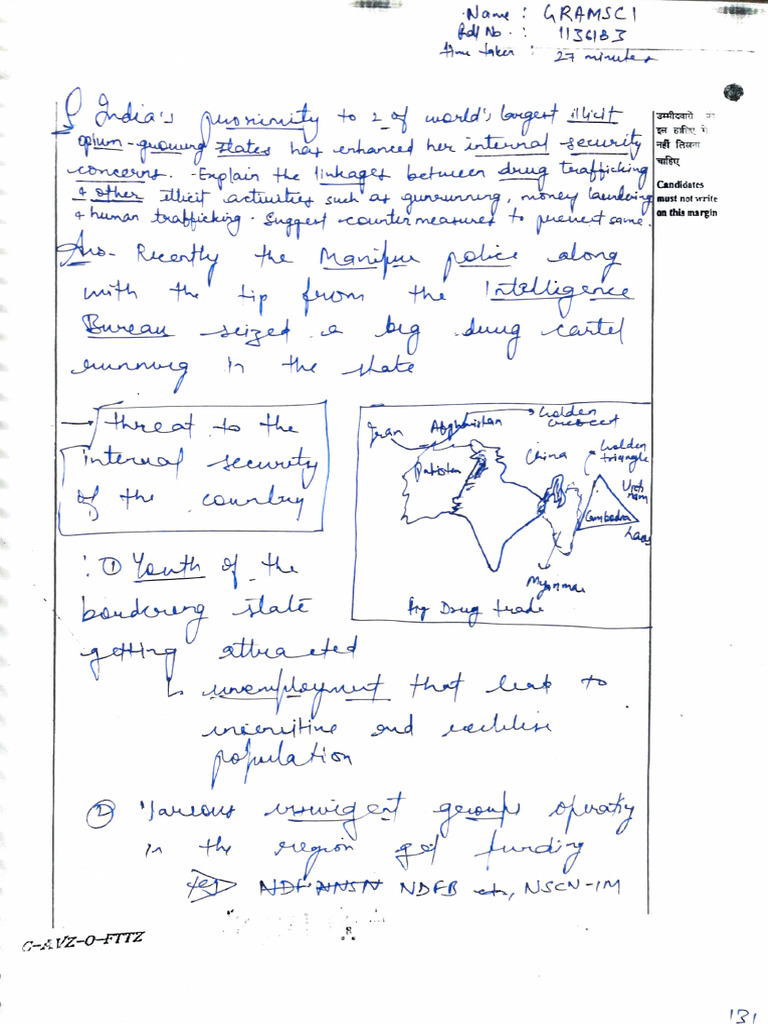 Name : GRAMSCI
Roll No. : 1136183
time taken : 27 minutes
उम्मीदवारों को
इस हाशिए में
नहीं लिखना
चाहिए
Candidates
must not write
on this margin
Q India's proximity to 2 of world's largest illicit
opium-growing states has enhanced her internal security
concerns. Explain the linkages between drug trafficking
& other illicit activities such as gunrunning, money laundering
& human trafficking. Suggest countermeasures to prevent same.
Ans- Recently the Manipur police along
with the tip from the Intelligence
Bureau seized a big drug cartel
running in the state
→ threat to the
internal security
of the country
Iran Afghanistan → Golden
crescent
Pakistan China Golden
triangle
Cambodia
Laos
Myanmar
Fig Drug trade
: ① Youth of the
bordering state
getting attracted
↳ unemployment that lead to
and
population
② Various insurgent groups operating
in the region get funding
eg NDFB etc, NSCN-IM
C-AVZ-O-FTTZ
8
131